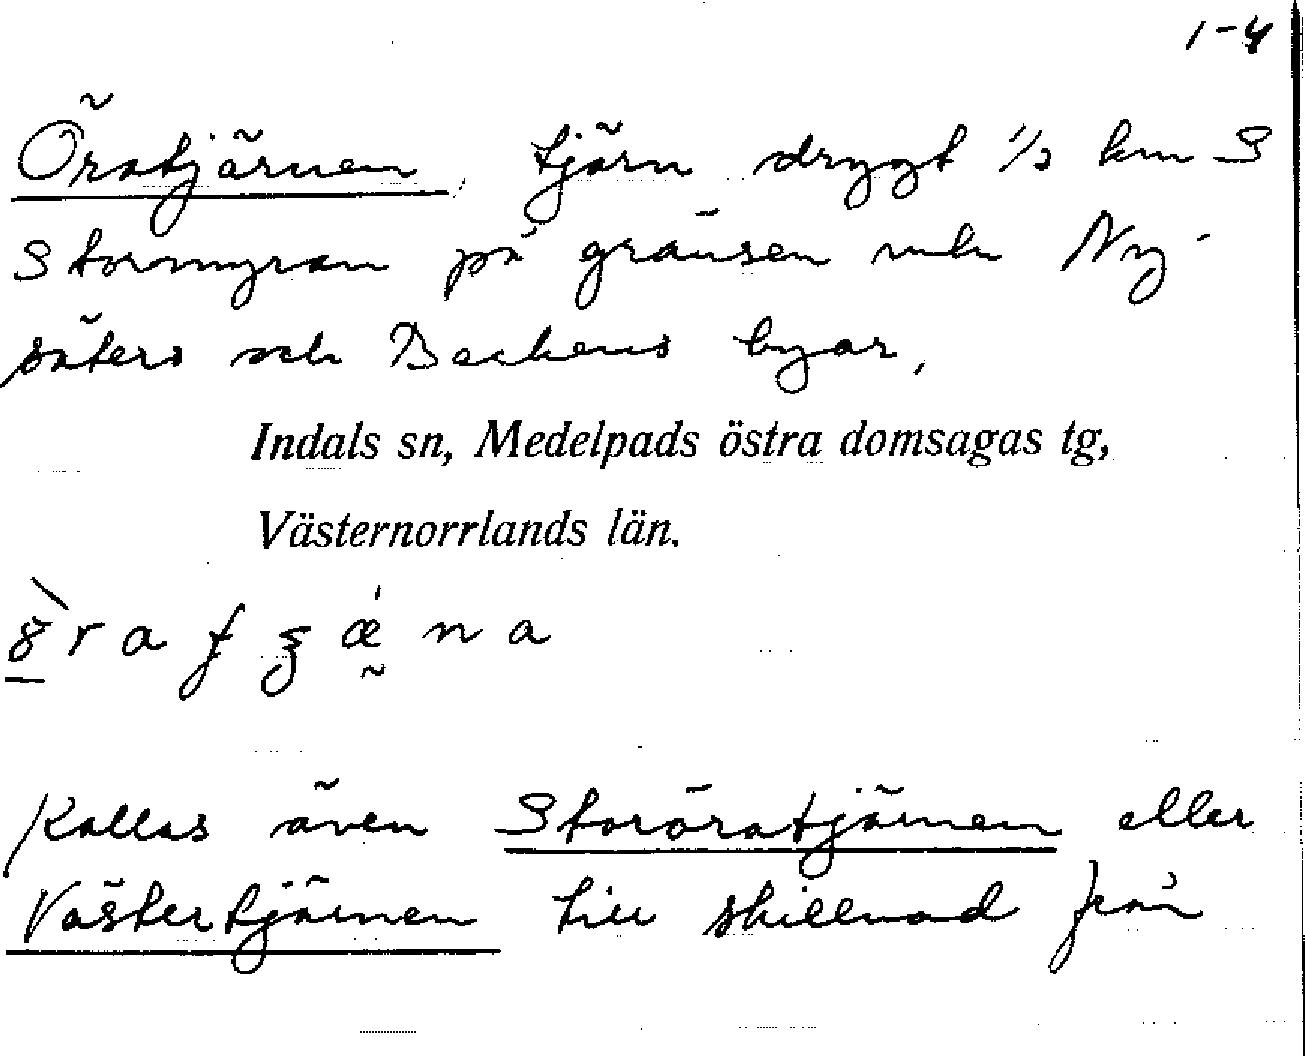 1-4
Öratjärnen, tjärn drygt 1/2 km S
Stormyran på gränsen mln Ny-
säters och Backens byar,
Indals sn, Medelpads östra domsagas tg,
Västernorrlands län.
Kallas även Storöratjärnen eller
Västertjärnen till skillnad från